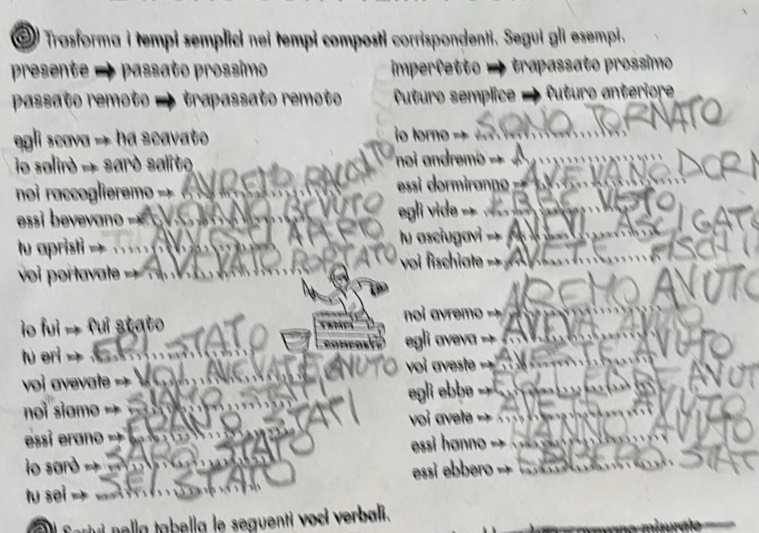 Trasforma i tempi semplici nei tempi composti corrispondenti. Segui gli esempi.
presente ➡ passato prossimo
passato remoto ➡ trapassato remoto
imperfetto ➡ trapassato prossimo
futuro semplice ➡ futuro anteriore
egli scava ➡ ha scavato
io salirò ➡ sarò salito
noi raccoglieremo ➡ AVREMO
essi bevevano ➡ BEVUTO
tu apristi ➡ AVESTI
voi portavate ➡ AVEVATO PORTATO
io torno ➡ SONO TORNATO
noi andremo ➡ A
essi dormiranno ➡ AVEVANO DORM
egli vide ➡ EBBE VISTO
tu asciugavi ➡ AVEVI ASCIGAT
voi fischiate ➡ AVETE FISCHI
io fui ➡ fui stato
tu eri ➡ ERI STATO
voi avevate ➡ VOI AVEVATE AVUTO
noi siamo ➡ SIAMO
essi erano ➡ ERANO STATI
io sarò ➡ SARO STATO
tu sei ➡ SEI STATO
TEMPI
COMPOSTI
noi avremo ➡ AREMO AVUTO
egli aveva ➡ AVEVA
voi aveste ➡ AVUTO
egli ebbe ➡ EBBE AVUT
voi avete ➡ AVETE AVUTO
essi hanno ➡ HANNO AVUTO
essi ebbero ➡ EBBERO STAT
Scrivi nella tabella le seguenti voci verbali.